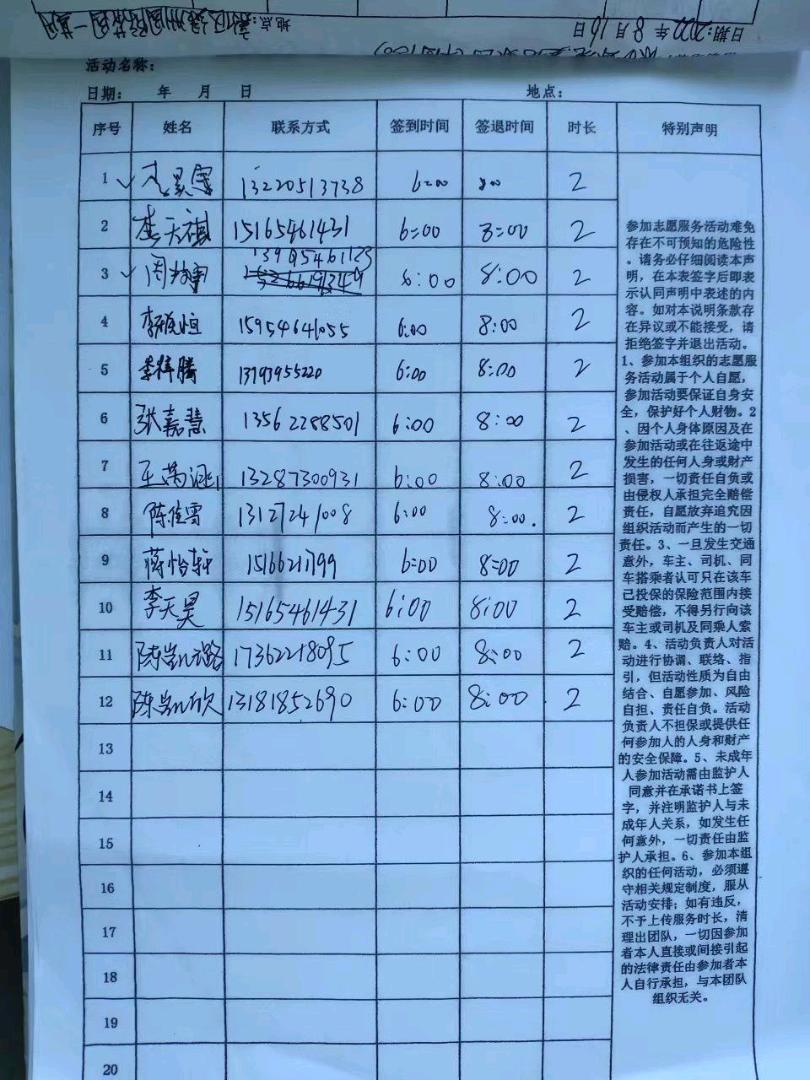 日期:2022年8月16日
地点:
活动名称:
日期: 年 月 日 地点:
序号 姓名 联系方式 签到时间 签退时间 时长 特别声明
1 13220513738 6:00 8:00 2
2 李天祺 15165461431 6:00 8:00 2
3 13905461123 6:00 8:00 2
4 15954646055 6:00 8:00 2
5 李祥腾 13793955220 6:00 8:00 2
6 张嘉慧 13562288501 6:00 8:00 2
7 13287300931 6:00 8:00 2
8 陈佳雪 13127241008 6:00 8:00. 2
9 蒋怡轩 6:00 8:00 2
10 李天昊 15165461431 6:00 8:00 2
11 陈凯璐 17362218095 6:00 8:00 2
12 陈凯欣 13181852690 6:00 8:00 2
13
14
15
16
17
18
19
20
参加志愿服务活动难免
存在不可预知的危险性
。请务必仔细阅读本声
明，在本表签字后即表
示认同声明中表述的内
容。如对本说明条款存
在异议或不能接受，请
拒绝签字并退出活动。
1、参加本组织的志愿服
务活动属于个人自愿，
参加活动要保证自身安
全，保护好个人财物。2
、因个人身体原因及在
参加活动或在往返途中
发生的任何人身或财产
损害，一切责任自负或
由侵权人承担完全赔偿
责任，自愿放弃追究因
组织活动而产生的一切
责任。3、一旦发生交通
意外，车主、司机、同
车搭乘者认可只在该车
已投保的保险范围内接
受赔偿，不得另行向该
车主或司机及同乘人索
赔。4、活动负责人对活
动进行协调、联络、指
引，但活动性质为自由
结合、自愿参加、风险
自担、责任自负。活动
负责人不担保或提供任
何参加人的人身和财产
的安全保障。5、未成年
人参加活动需由监护人
同意并在承诺书上签
字，并注明监护人与未
成年人关系，如发生任
何意外，一切责任由监
护人承担。6、参加本组
织的任何活动，必须遵
守相关规定制度，服从
活动安排；如有违反，
不予上传服务时长，清
理出团队，一切因参加
者本人直接或间接引起
的法律责任由参加者本
人自行承担，与本团队
组织无关。